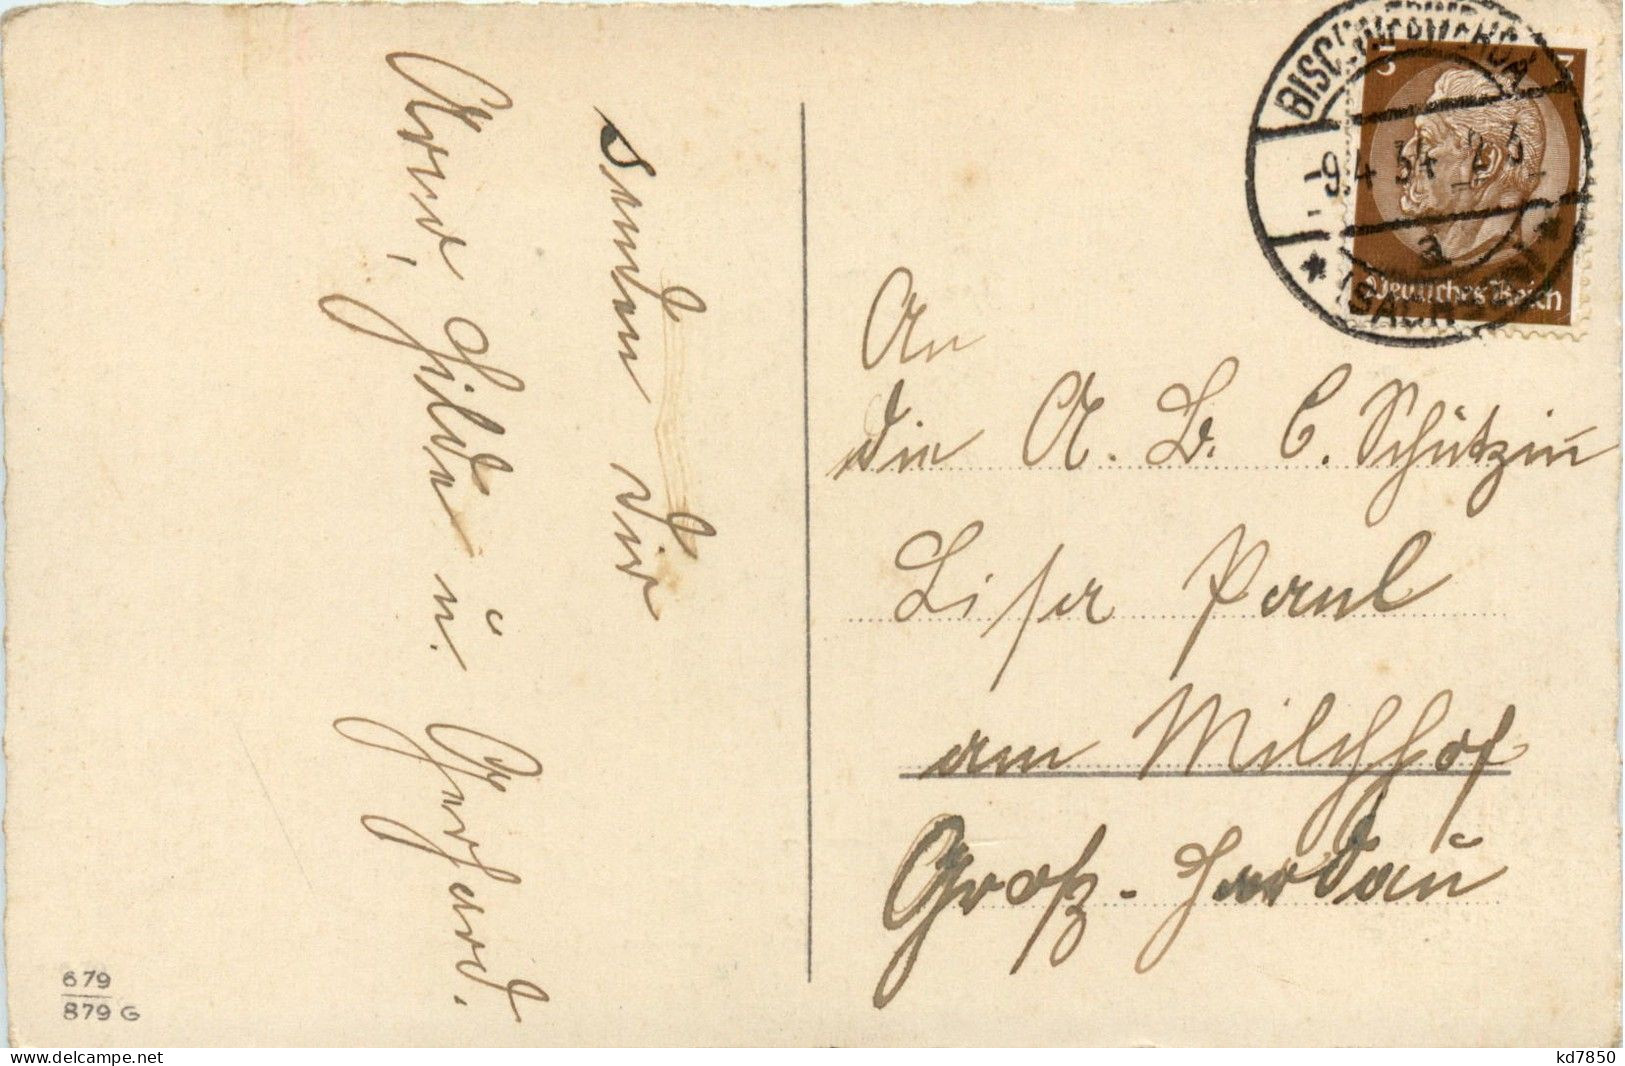 senden dir
Arno, Hilde u. Gerhard.
679
879 G
BISCHOFSWERDA
(SACHSEN)
-9.4.34. 2-3
a
3
3
Deutsches Reich
An
die A. B. C. Schützin
Lisa Paul
am Milchhof
Groß-Harthau
www.delcampe.net
kd7850